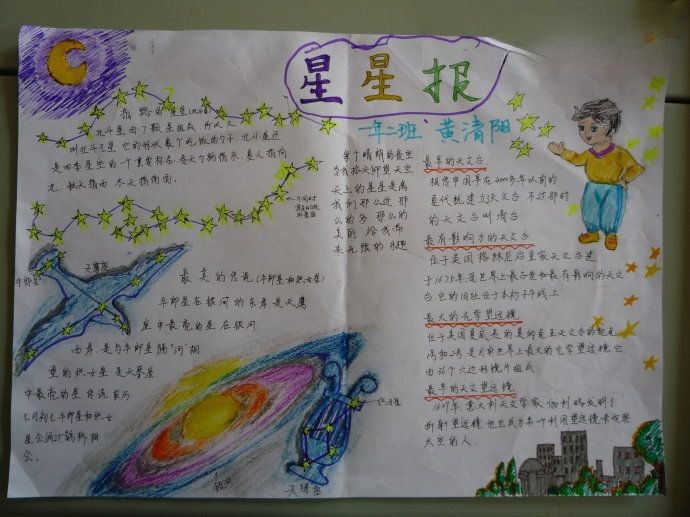 星星报
一年二班 黄清阳
指路的星星(北斗星)
北斗星由7颗星组成 所以又
叫北斗七星 它的形状像个吃饭的勺子 北斗星还
是四季星空的一个重要标志:春天勺柄指东 夏天指南
秋天指西 冬天指
天鹰座
牛郎星
最美的传说(牛郎星和织女星)
牛郎星在银河的东岸是天鹰
座中最亮的星 在银河
西岸是与牛郎星隔"河"相
望的织女星 是天琴座
中最亮的星 传说
七月初七牛郎星和织女
星会通过鹊桥相
会。
银河
天琴座
织女星
每个晴朗的夜空
当我抬头仰望天空
天上的星星是离
我们那么近 那
么的多 那么的
美丽 给我带
来无限的乐趣
最早的天文台
相传中国早在4000多年以前的
夏代就建立天文台 不过那时
的天文台叫清台
最有影响力的天文台
位于英国格林尼治皇家天文台建
于1675年是世界上最古老和最有影响的天文
台 它的旧址位于本初子午线上
最大的光学望远镜
位于美国夏威夷的莫纳克亚天文台的凯克
1号和2号是目前世界上最大的光学望远镜 它
由36个六边形镜片组成
最早的天文望远镜
1609年意大利天文学家伽利略发明了
折射望远镜 他也成为第一个利用望远镜来观察
太空的人.